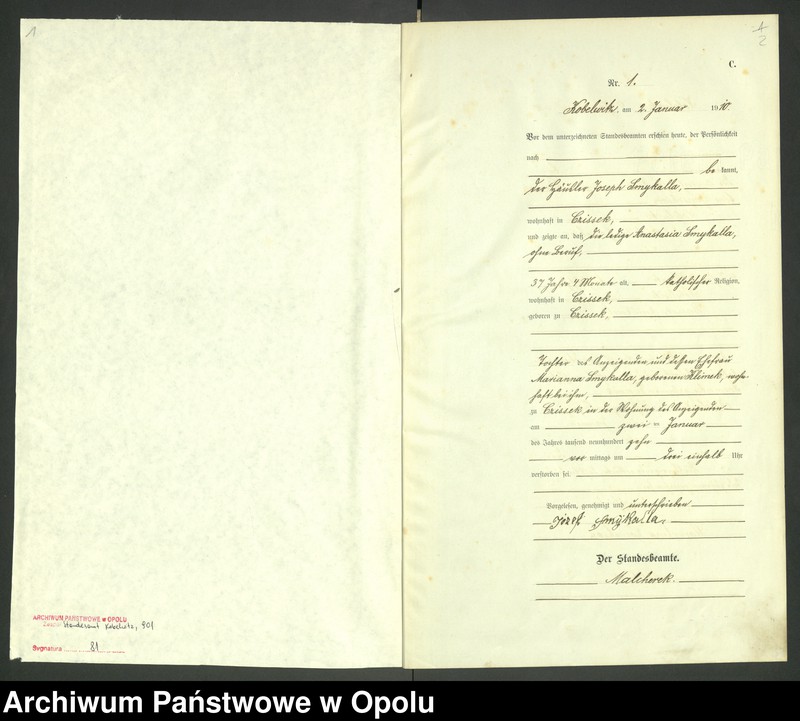 1
4/2
C.
Nr. 1.
Kobelwitz, am 2. Januar 1910.
Vor dem unterzeichneten Standesbeamten erschien heute, der Persönlichkeit
nach
be kannt,
der Häusler Joseph Smykalla,
wohnhaft in Czissek,
und zeigte an, daß die ledige Anastasia Smykalla,
ohne Beruf,
37 Jahre 4 Monate alt, katholischer Religion,
wohnhaft in Czissek,
geboren zu Czissek,
Tochter des Anzeigenden und dessen Ehefrau
Marianna Smykalla, geborenen Klimek, wohn-
haft bei ihm,
zu Czissek in der Wohnung des Anzeigenden
am zwei ten Januar
des Jahres tausend neunhundert zehn
vor mittags um drei einhalb Uhr
verstorben sei.
Vorgelesen, genehmigt und unterschrieben
Józef Smÿkalla.
Der Standesbeamte.
Malcherek.
ARCHIWUM PAŃSTWOWE w OPOLU
Zespół Standesamt Kobelwitz, 901
Sygnatura 81
Archiwum Państwowe w Opolu